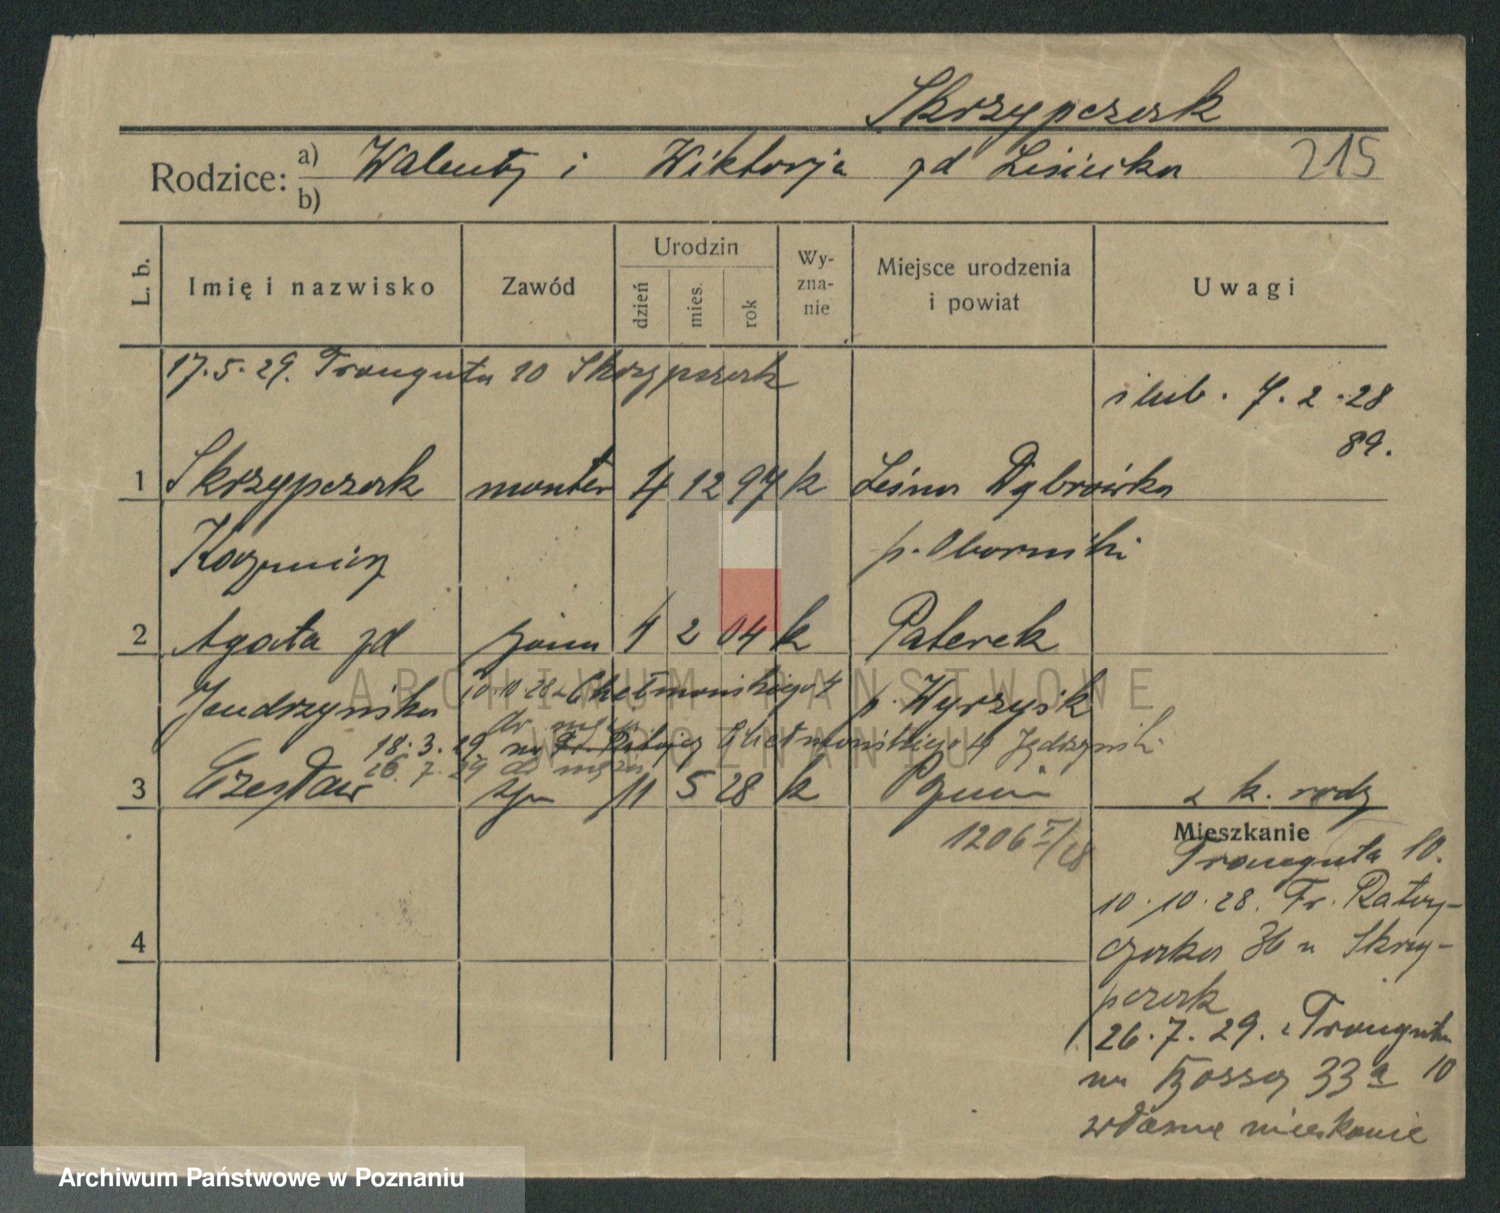 Skrzypczak
Rodzice: a) Walenty i Wiktorja zd Lisiecka 215
b)
L. b. Imię i nazwisko Zawód Urodzin dzień mies. rok Wy-zna-nie Miejsce urodzenia i powiat Uwagi
17.5.29. Trauguta 10 Skrzypczak
ślub. 7.2.28
89.
1 Skrzypczak monter 4 12 97 k Leśna Dąbrówka
Kazimierz p. Oborniki
2 Agata zd żona 1 2 04 k Paterek
Jendrzyńska 10.10.28 Chełmońskiego 4 p. Wyrzysk
do męża
18.3.29 Chełmońskiego 4 Jędrzyński
26.7.29 do męża
3 Czesław syn 11 5 28 k Poznań z k. rodz
1206 /28
Mieszkanie
Trauguta 10.
10.10.28. Fr. Ratay-
czaka 36 u Skrzy-
pczak
26.7.29. z Trauguta
na 33a 10
własne mieszkanie
4
ARCHIWUM PAŃSTWOWE
W POZNANIU
Archiwum Państwowe w Poznaniu